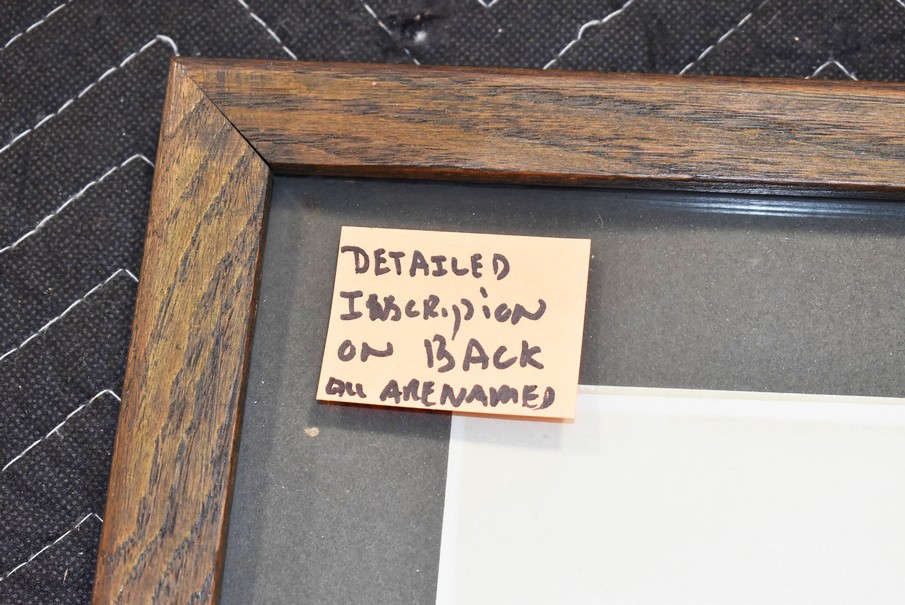 DETAILED
INSCRIPION
ON BACK
ALL ARE NAMED